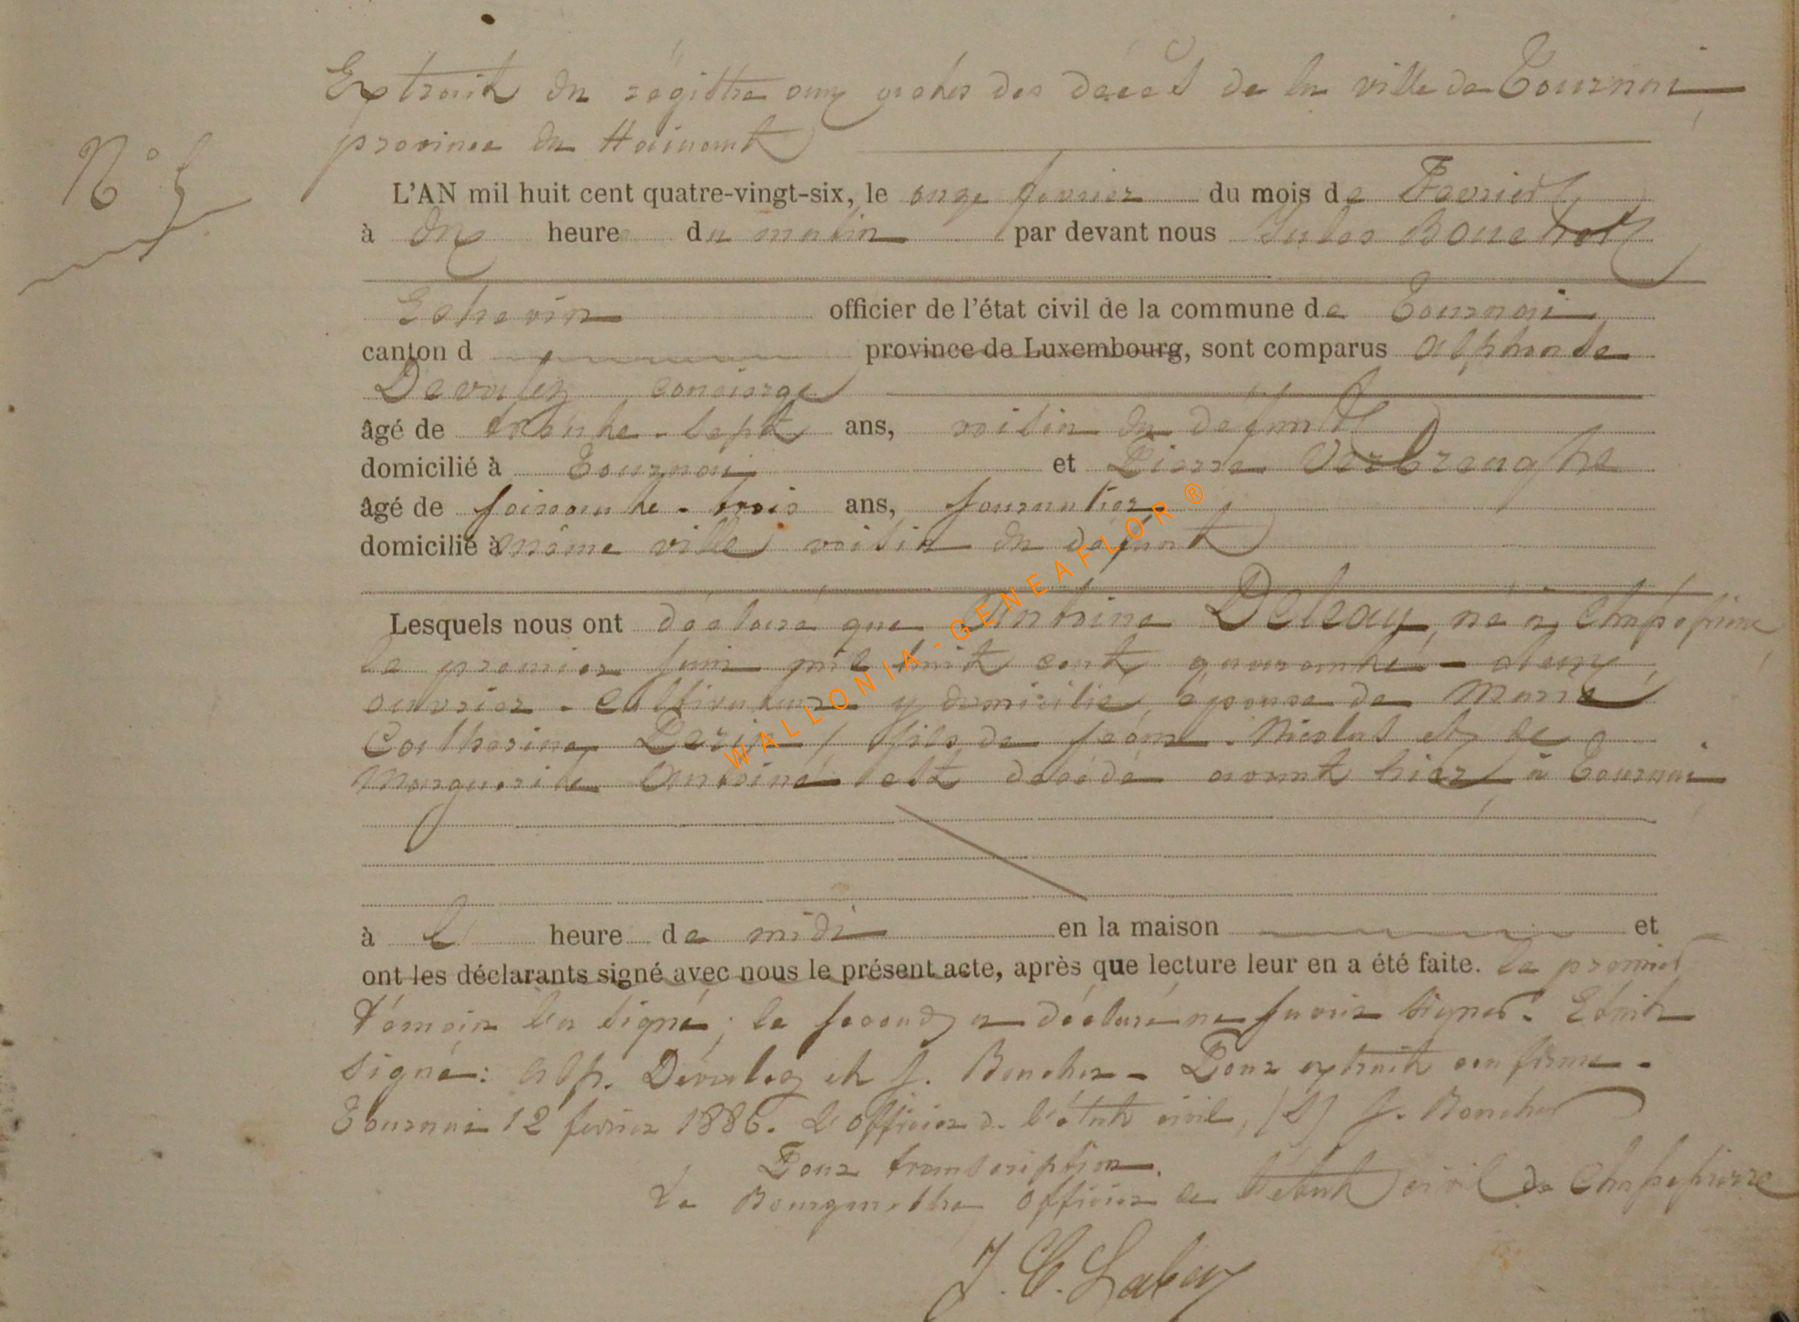 Extrait du régistre aux actes des décès de la ville de Tournai
province du Hainaut
N° 5
L'AN mil huit cent quatre-vingt-six, le onze fevrier du mois de Fevrier
à dix heures du matin par devant nous Jules Boucher
Echevin officier de l'état civil de la commune de Tournai
canton d province de Luxembourg, sont comparus Alphonse
Devalez, concierge
âgé de trente-sept ans, voisin du defunt
domicilié à Tournai et Pierre Verbreughe
âgé de soixante-trois ans, journalier
domicilié à même ville voisin du défunt
Lesquels nous ont déclaré que Antoine Deleau, né à Chapepierre
le premier juin mil huit cent quarante-deux
ouvrier-cultivateur y domicilié, epoux de Marie
Catherine fils de Nicolas et de
Marguerite Antoine est décédé avant hier à Tournai
à heure de midi en la maison et
ont les déclarants signé avec nous le présent acte, après que lecture leur en a été faite. le premier
témoin l'a signé, le second a déclaré ne savoir signer. Etait
signé: Alp. Dévalez et J. Boucher - Pour extrait conforme -
Tournai 12 fevrier 1886. L'officier de l'état civil, (S) J. Boucher
Pour transcription.
Le Bourgmestre officier de l'état civil de Chapepierre
J. C.
WALLONIA-GENEAFLOR®